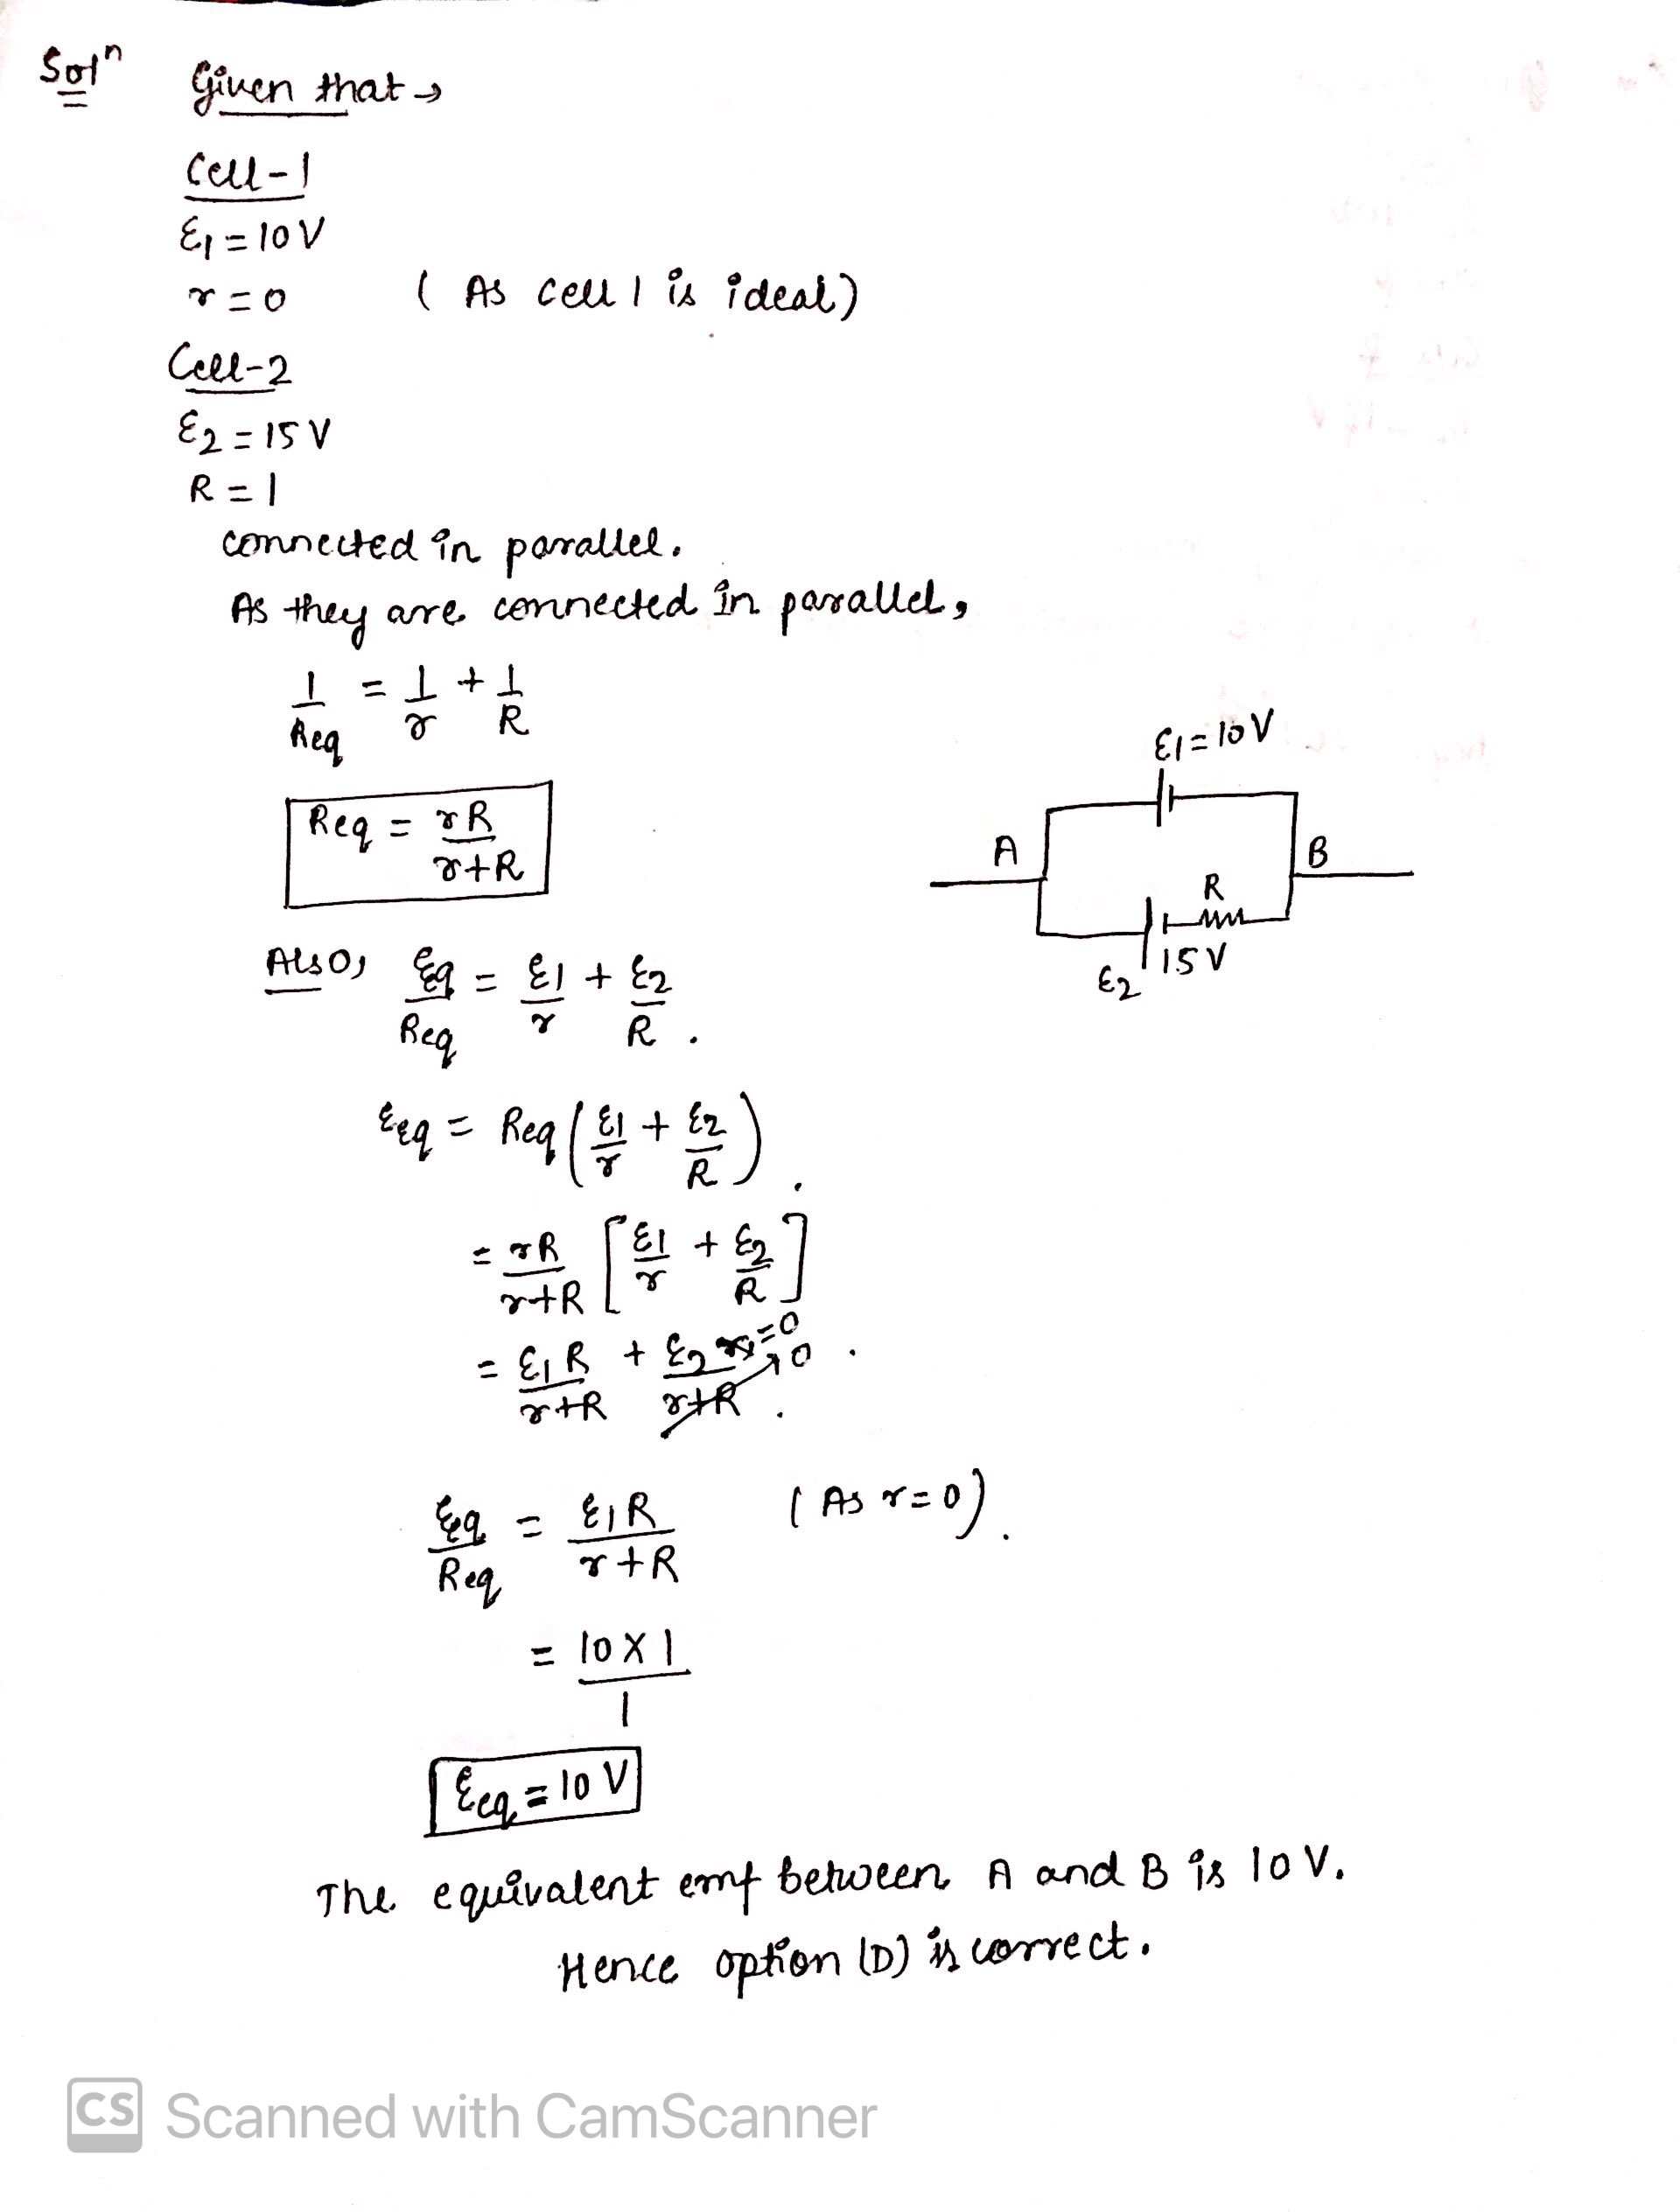 Solⁿ Given that →
Cell-1
ε₁ = 10 V
r = 0 ( As cell 1 is ideal)
Cell-2
ε₂ = 15 V
R = 1
connected in parallel.
As they are connected in parallel,
1/Req = 1/r + 1/R
Req = rR/r+R
ε₁ = 10 V
A
B
R
15 V
ε₂
Also, εeq/Req = ε₁/r + ε₂/R .
εeq = Req ( ε₁/r + ε₂/R ) .
= rR/r+R [ ε₁/r + ε₂/R ]
= ε₁R/r+R + ε₂ r=0/r+R → 0 .
εeq/Req = ε₁R/r+R ( As r=0 ) .
= 10 X 1/1
εeq = 10 V
The equivalent emf between A and B is 10 V.
Hence option (D) is correct.
CS Scanned with CamScanner